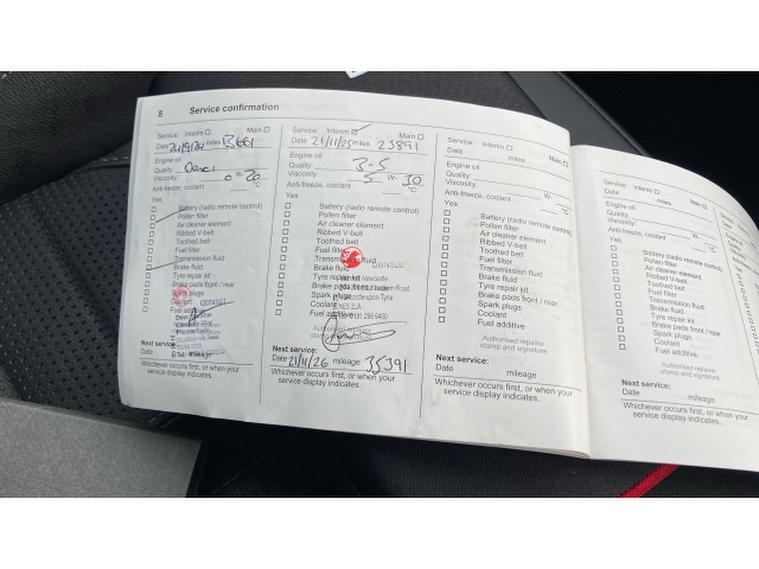 8 Service confirmation
Service: Interim Main
Date 24/9/24 miles 13661
Engine oil
Quality:
Viscosity: 0 W- 20
Anti-freeze, coolant °C
Yes
Battery (radio remote control)
Pollen filter
Air cleaner element
Ribbed V-belt
Toothed belt
Fuel filter
Transmission fluid
Brake fluid
Tyre repair kit
Brake pads front / rear
Spark plugs
Coolant
Fuel additive
Next service:
Date mileage
Whichever occurs first, or when your
service display indicates.
Service: Interim Main
Date 21/11/25 miles 23891
Engine oil
Quality:
Viscosity: 5 W- 30
Anti-freeze, coolant °C
Yes
Battery (radio remote control)
Pollen filter
Air cleaner element
Ribbed V-belt
Toothed belt
Fuel filter
Transmission fluid
Brake fluid
Tyre repair kit
Brake pads front / rear
Spark plugs
Coolant
Fuel additive
Authorised repairer
stamp and signature
Next service:
Date 21/11/26 mileage 35391
Whichever occurs first, or when your
service display indicates.
Service: Interim Main
Date miles
Engine oil
Quality:
Viscosity: W-
Anti-freeze, coolant °C
Yes
Battery (radio remote control)
Pollen filter
Air cleaner element
Ribbed V-belt
Toothed belt
Fuel filter
Transmission fluid
Brake fluid
Tyre repair kit
Brake pads front / rear
Spark plugs
Coolant
Fuel additive
Authorised repairer
stamp and signature
Next service:
Date mileage
Whichever occurs first, or when your
service display indicates.
Service: Interim Main
Date miles
Engine oil
Quality:
Viscosity: W-
Anti-freeze, coolant °C
Yes
Battery (radio remote control)
Pollen filter
Air cleaner element
Ribbed V-belt
Toothed belt
Fuel filter
Transmission fluid
Brake fluid
Tyre repair kit
Brake pads front / rear
Spark plugs
Coolant
Fuel additive
Authorised repairer
stamp and signature
Next service:
Date mileage
Whichever occurs first, or when your
service display indicates.